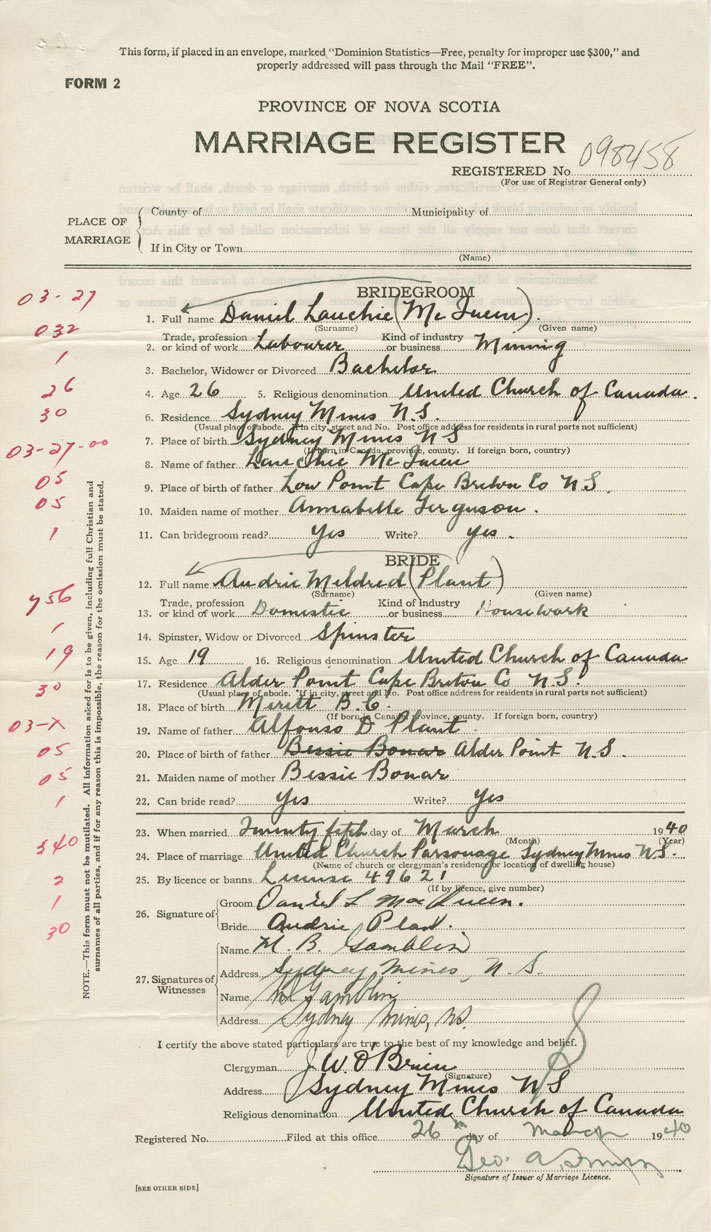 This form, if placed in an envelope, marked "Dominion Statistics—Free, penalty for improper use $300," and
properly addressed will pass through the Mail "FREE".
FORM 2
PROVINCE OF NOVA SCOTIA
MARRIAGE REGISTER
REGISTERED No. 098458
(For use of Registrar General only)
PLACE OF MARRIAGE
County of
Municipality of
If in City or Town
(Name)
BRIDEGROOM
03-27
1. Full name Daniel Lauchie (Mc Queen).
(Surname) (Given name)
032
2. Trade, profession or kind of work Labourer Kind of industry or business Mining
1
3. Bachelor, Widower or Divorced Bachelor
26
4. Age 26 5. Religious denomination United Church of Canada.
30
6. Residence Sydney Mines N.S.
(Usual place of abode. If in city, street and No. Post office address for residents in rural parts not sufficient)
03-27-00
7. Place of birth Sydney Mines N S
(If born in Canada, province, county. If foreign born, country)
8. Name of father Lauchie Mc Queen
05
9. Place of birth of father Low Point Cape Breton Co N.S.
05
10. Maiden name of mother Annabelle Ferguson.
1
11. Can bridegroom read? Yes Write? yes.
BRIDE
12. Full name Audrie Mildred (Plant)
(Surname) (Given name)
y56
13. Trade, profession or kind of work Domestic Kind of industry or business Housework
1
14. Spinster, Widow or Divorced Spinster
19
15. Age 19 16. Religious denomination United Church of Canada
30
17. Residence Alder Point Cape Breton Co N.S.
(Usual place of abode. If in city, street and No. Post office address for residents in rural parts not sufficient)
18. Place of birth Meritt B.C.
(If born in Canada, province, county. If foreign born, country)
03-X
19. Name of father Alfonso D Plant.
05
20. Place of birth of father Bessie Bonar Alder Point N.S.
05
21. Maiden name of mother Bessie Bonar
1
22. Can bride read? Yes Write? Yes
23. When married Twenty fifth day of March 1940
(Month) (Year)
340
24. Place of marriage United Church Parsonage Sydney Mines N.S.
(Name of church or clergyman's residence or location of dwelling house)
2
25. By licence or banns License 49621
(If by licence, give number)
1
30
26. Signature of
Groom Daniel L MacQueen.
Bride Audrie Plant.
27. Signatures of Witnesses
Name M. B. Gamblin
Address Sydney Mines, N.S.
Name Gamblin
Address Sydney Mines, N.S.
NOTE.—This form must not be mutilated. All information asked for is to be given, including full Christian and
surnames of all parties, and if for any reason this is impossible, the reason for the omission must be stated.
I certify the above stated particulars are true to the best of my knowledge and belief.
Clergyman J W. O'Brien
(Signature)
Address Sydney Mines N S
Religious denomination United Church of Canada
Registered No. Filed at this office 26 day of March 1940
Geo.
Signature of Issuer of Marriage Licence.
[SEE OTHER SIDE]